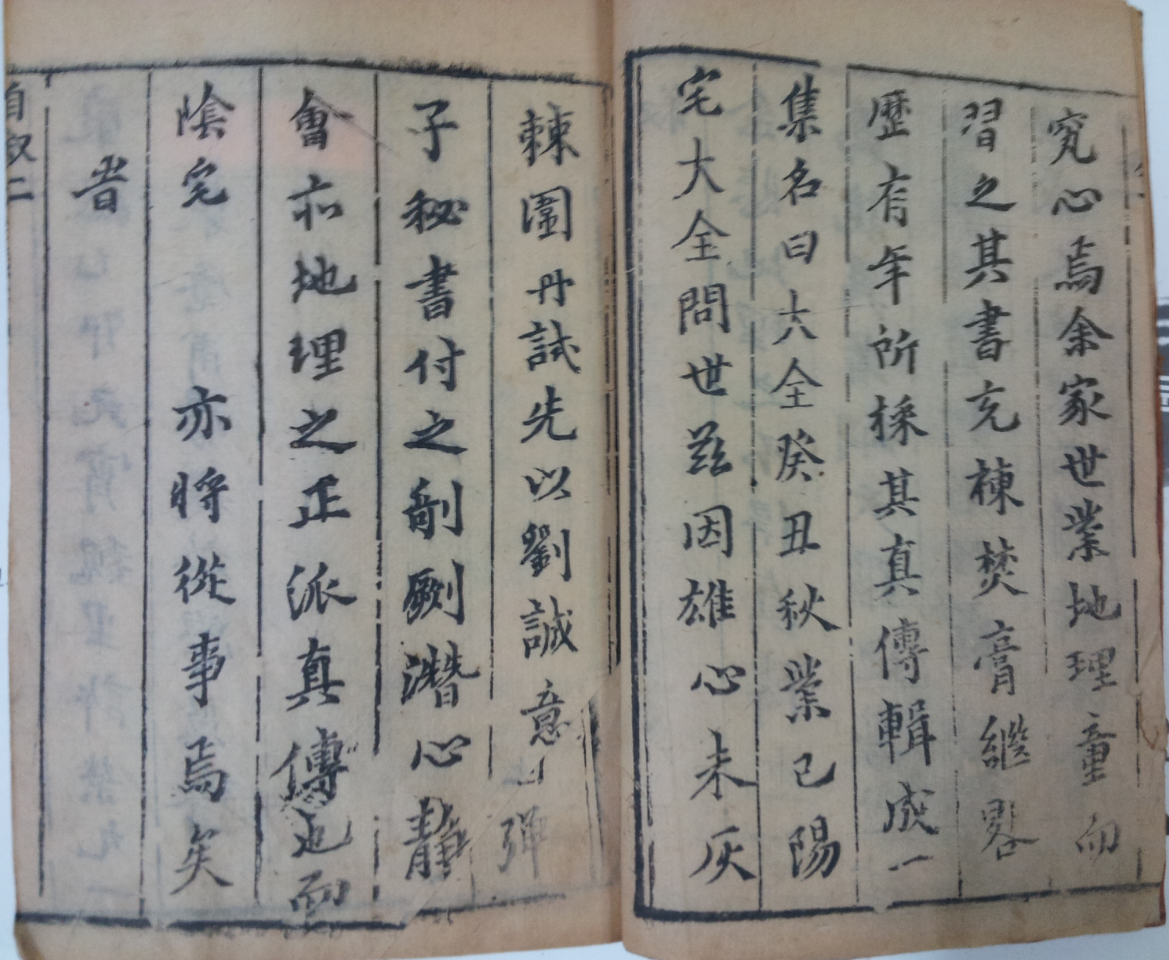 究心焉余家世業地理童而
習之其書充棟焚膏繼晷
歷有年所採其真傳輯成一
集名曰大全癸丑秋業已陽
宅大全問世茲因雄心未灰
棘圍再試先以劉誠意
子秘書付之剞劂潛心靜
會亦地理之正派真傳也而
陰宅 亦將從事焉矣
昔
自叙二